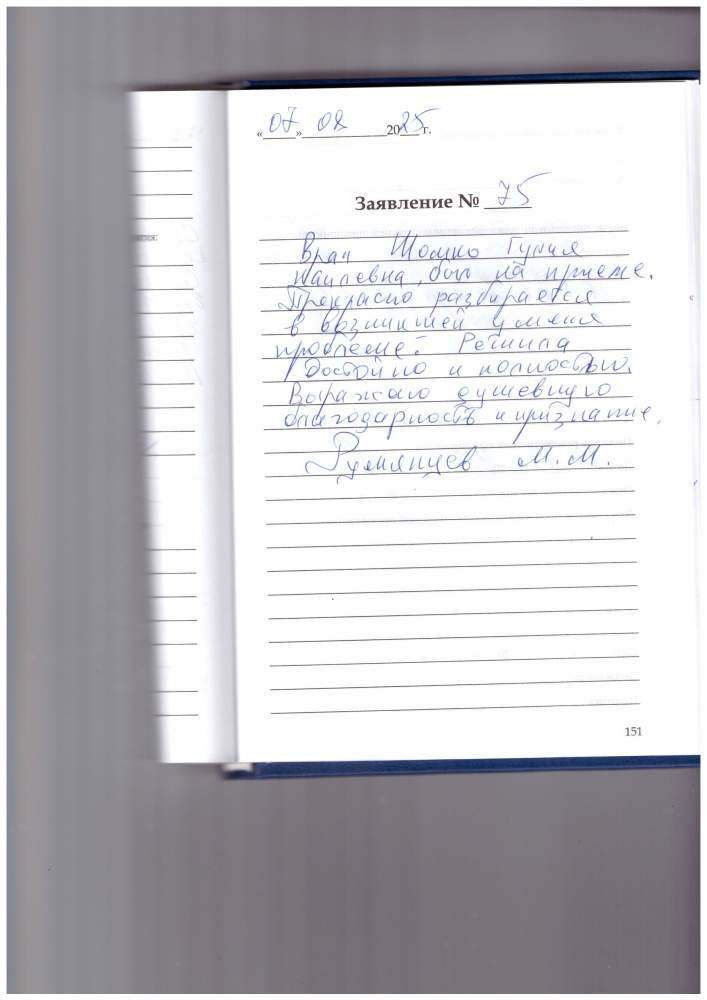 «07» 08 2025 г.
Заявление № 75
Врач Шомко Гулия
Наилевна, был на приеме.
Прекрасно разбирается
в возникшей у меня
проблеме. Решила
достойно и полностью.
Выражаю душевную
благодарность и признание.
Румянцев М.М.
151